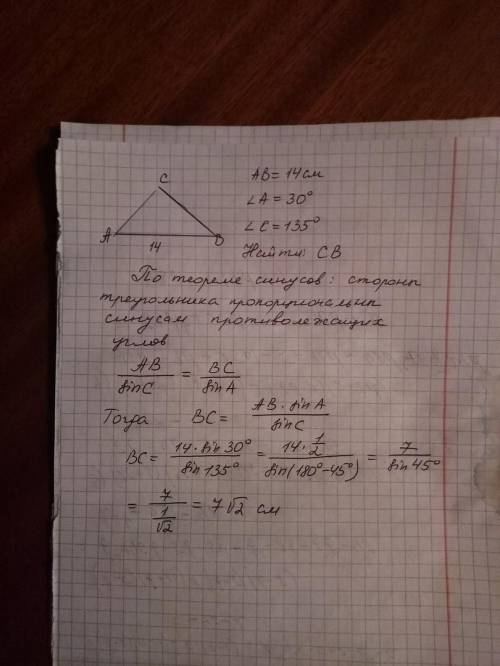 C
A
B
14
AB = 14 см
∠A = 30°
∠C = 135°
Найти: CB
По теореме синусов: стороны
треугольника пропорциональны
синусам противолежащих
углов
AB/sin C = BC/sin A
Тогда BC = AB · sin A/sin C
BC = 14 · sin 30°/sin 135° = 14 · 1/2/sin(180° - 45°) = 7/sin 45°
= 7/(1/√2) = 7√2 см